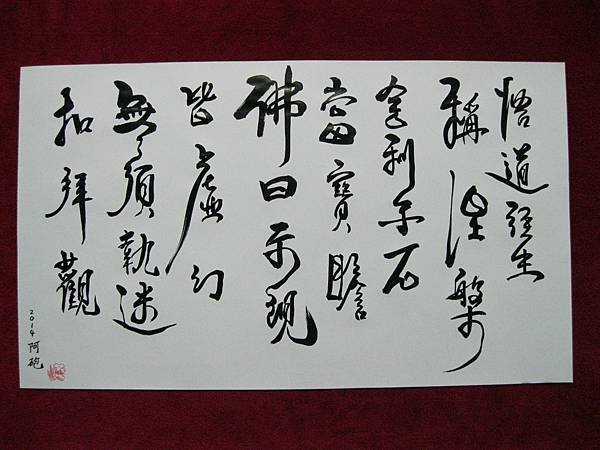 悟道
稱涅槃
舍利石
當寶瞻
佛曰示現
皆虛幻
無須執迷
扣拜觀
2014 阿砲